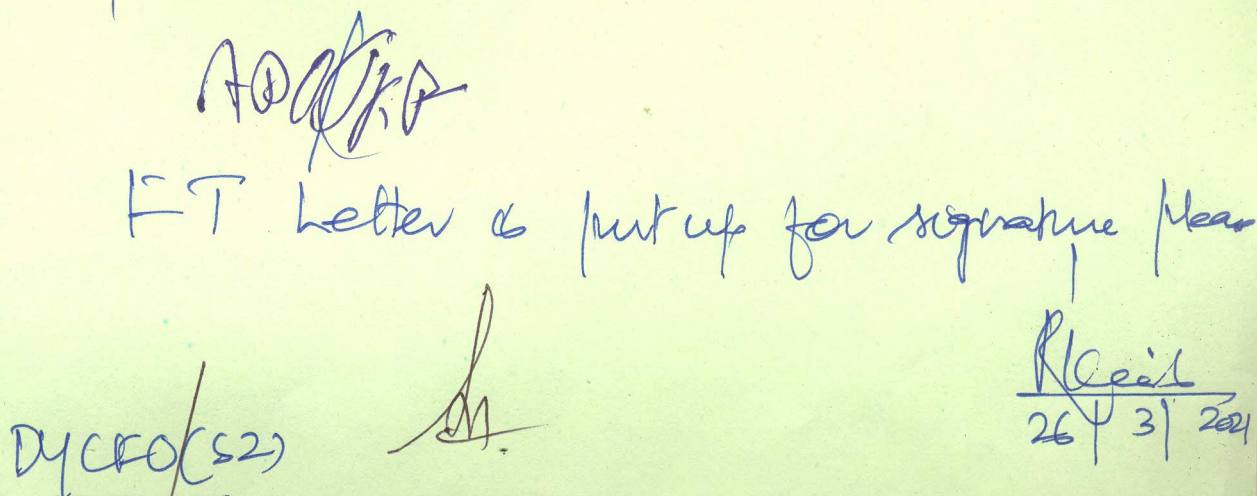 FT Letter is put up for signature pleas
26/3/2021
DYCFO(SZ)